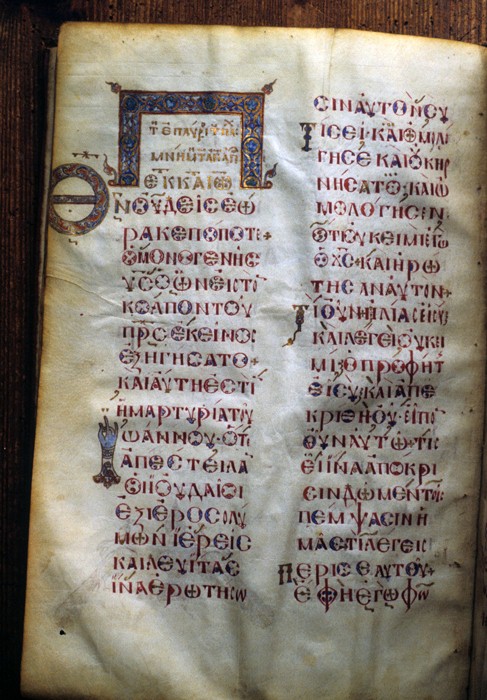 ΕΚ Κ ΙΩ
ΘΝ ΟΥΔΕΙΣ ΕΩ
ΡΑΚΕ ΠΟΠΟΤΕ+
Ο ΜΟΝΟΓΕΝΗΣ
ΥΣ Ο ΩΝ ΕΙΣ ΤΟ
ΚΟΛΠΟΝ ΤΟΥ
ΠΡΣ ΕΚΕΙΝΟΣ
ΕΞΗΓΗΣΑΤΟ+
ΚΑΙ ΑΥΤΗ ΕΣΤΙ
Η ΜΑΡΤΥΡΙΑ ΤΟΥ
ΙΩΑΝΝΟΥ· ΟΤΕ
ΑΠΕΣΤΕΙΛΑ
ΟΙ ΙΟΥΔΑΙΟΙ
ΕΞ ΙΕΡΟΣΟΛΥ
ΜΩΝ ΙΕΡΕΙΣ
ΚΑΙ ΛΕΥΙΤΑΣ
ΙΝΑ ΕΡΩΤΗΣΩ
ΣΙΝ ΑΥΤΟΝ ΣΥ
ΤΙΣ ΕΙ· ΚΑΙ ΩΜΟΛΟ
ΓΗΣΕ ΚΑΙ ΟΥΚ ΗΡ
ΝΗΣΑΤΟ· ΚΑΙ Ω
ΜΟΛΟΓΗΣΕΝ
ΟΤΙ ΟΥΚ ΕΙΜΙ ΕΓΩ
Ο ΧΣ· ΚΑΙ ΗΡΩ
ΤΗΣΑΝ ΑΥΤΟΝ+
ΤΙ ΟΥΝ ΗΛΙΑΣ ΕΙ ΣΥ
ΚΑΙ ΛΕΓΕΙ ΟΥΚ ΕΙ
ΜΙ· Ο ΠΡΟΦΗΤ
ΕΙ ΣΥ· ΚΑΙ ΑΠΕ
ΚΡΙΘΗ ΟΥ· ΕΙΠΟ
ΟΥΝ ΑΥΤΩ+ ΤΙΣ
ΕΙ ΙΝΑ ΑΠΟΚΡΙ
ΣΙΝ ΔΩΜΕΝ ΤΟΙΣ
ΠΕΜΨΑΣΙΝ Η
ΜΑΣ ΤΙ ΛΕΓΕΙΣ
ΠΕΡΙ ΣΕΑΥΤΟΥ+
ΕΦΗ ΕΓΩ ΦΩ